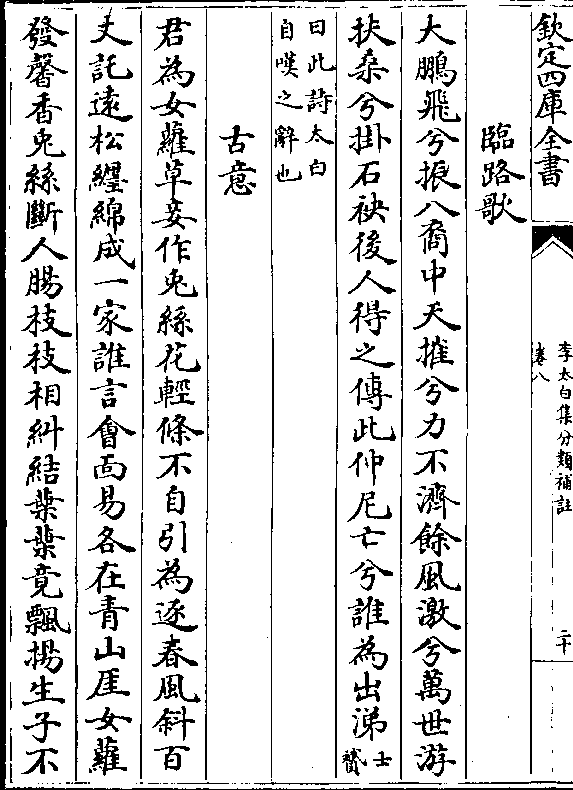 欽定四庫全書
李太白集分類補註
卷八
二十
臨路歌
大鵬飛兮振八裔中天摧兮力不濟餘風激兮萬世游
扶桑兮掛石袂後人得之傳此仲尼亡兮誰為出涕士贇
曰此詩太白
自嘆之辭也
古意
君為女蘿草妾作兎絲花輕條不自引為逐春風斜百
丈託逺松纒綿成一家誰言會面易各在青山厓女蘿
發馨香兎絲斷人腸枝枝相糾結葉葉竟飄揚生子不